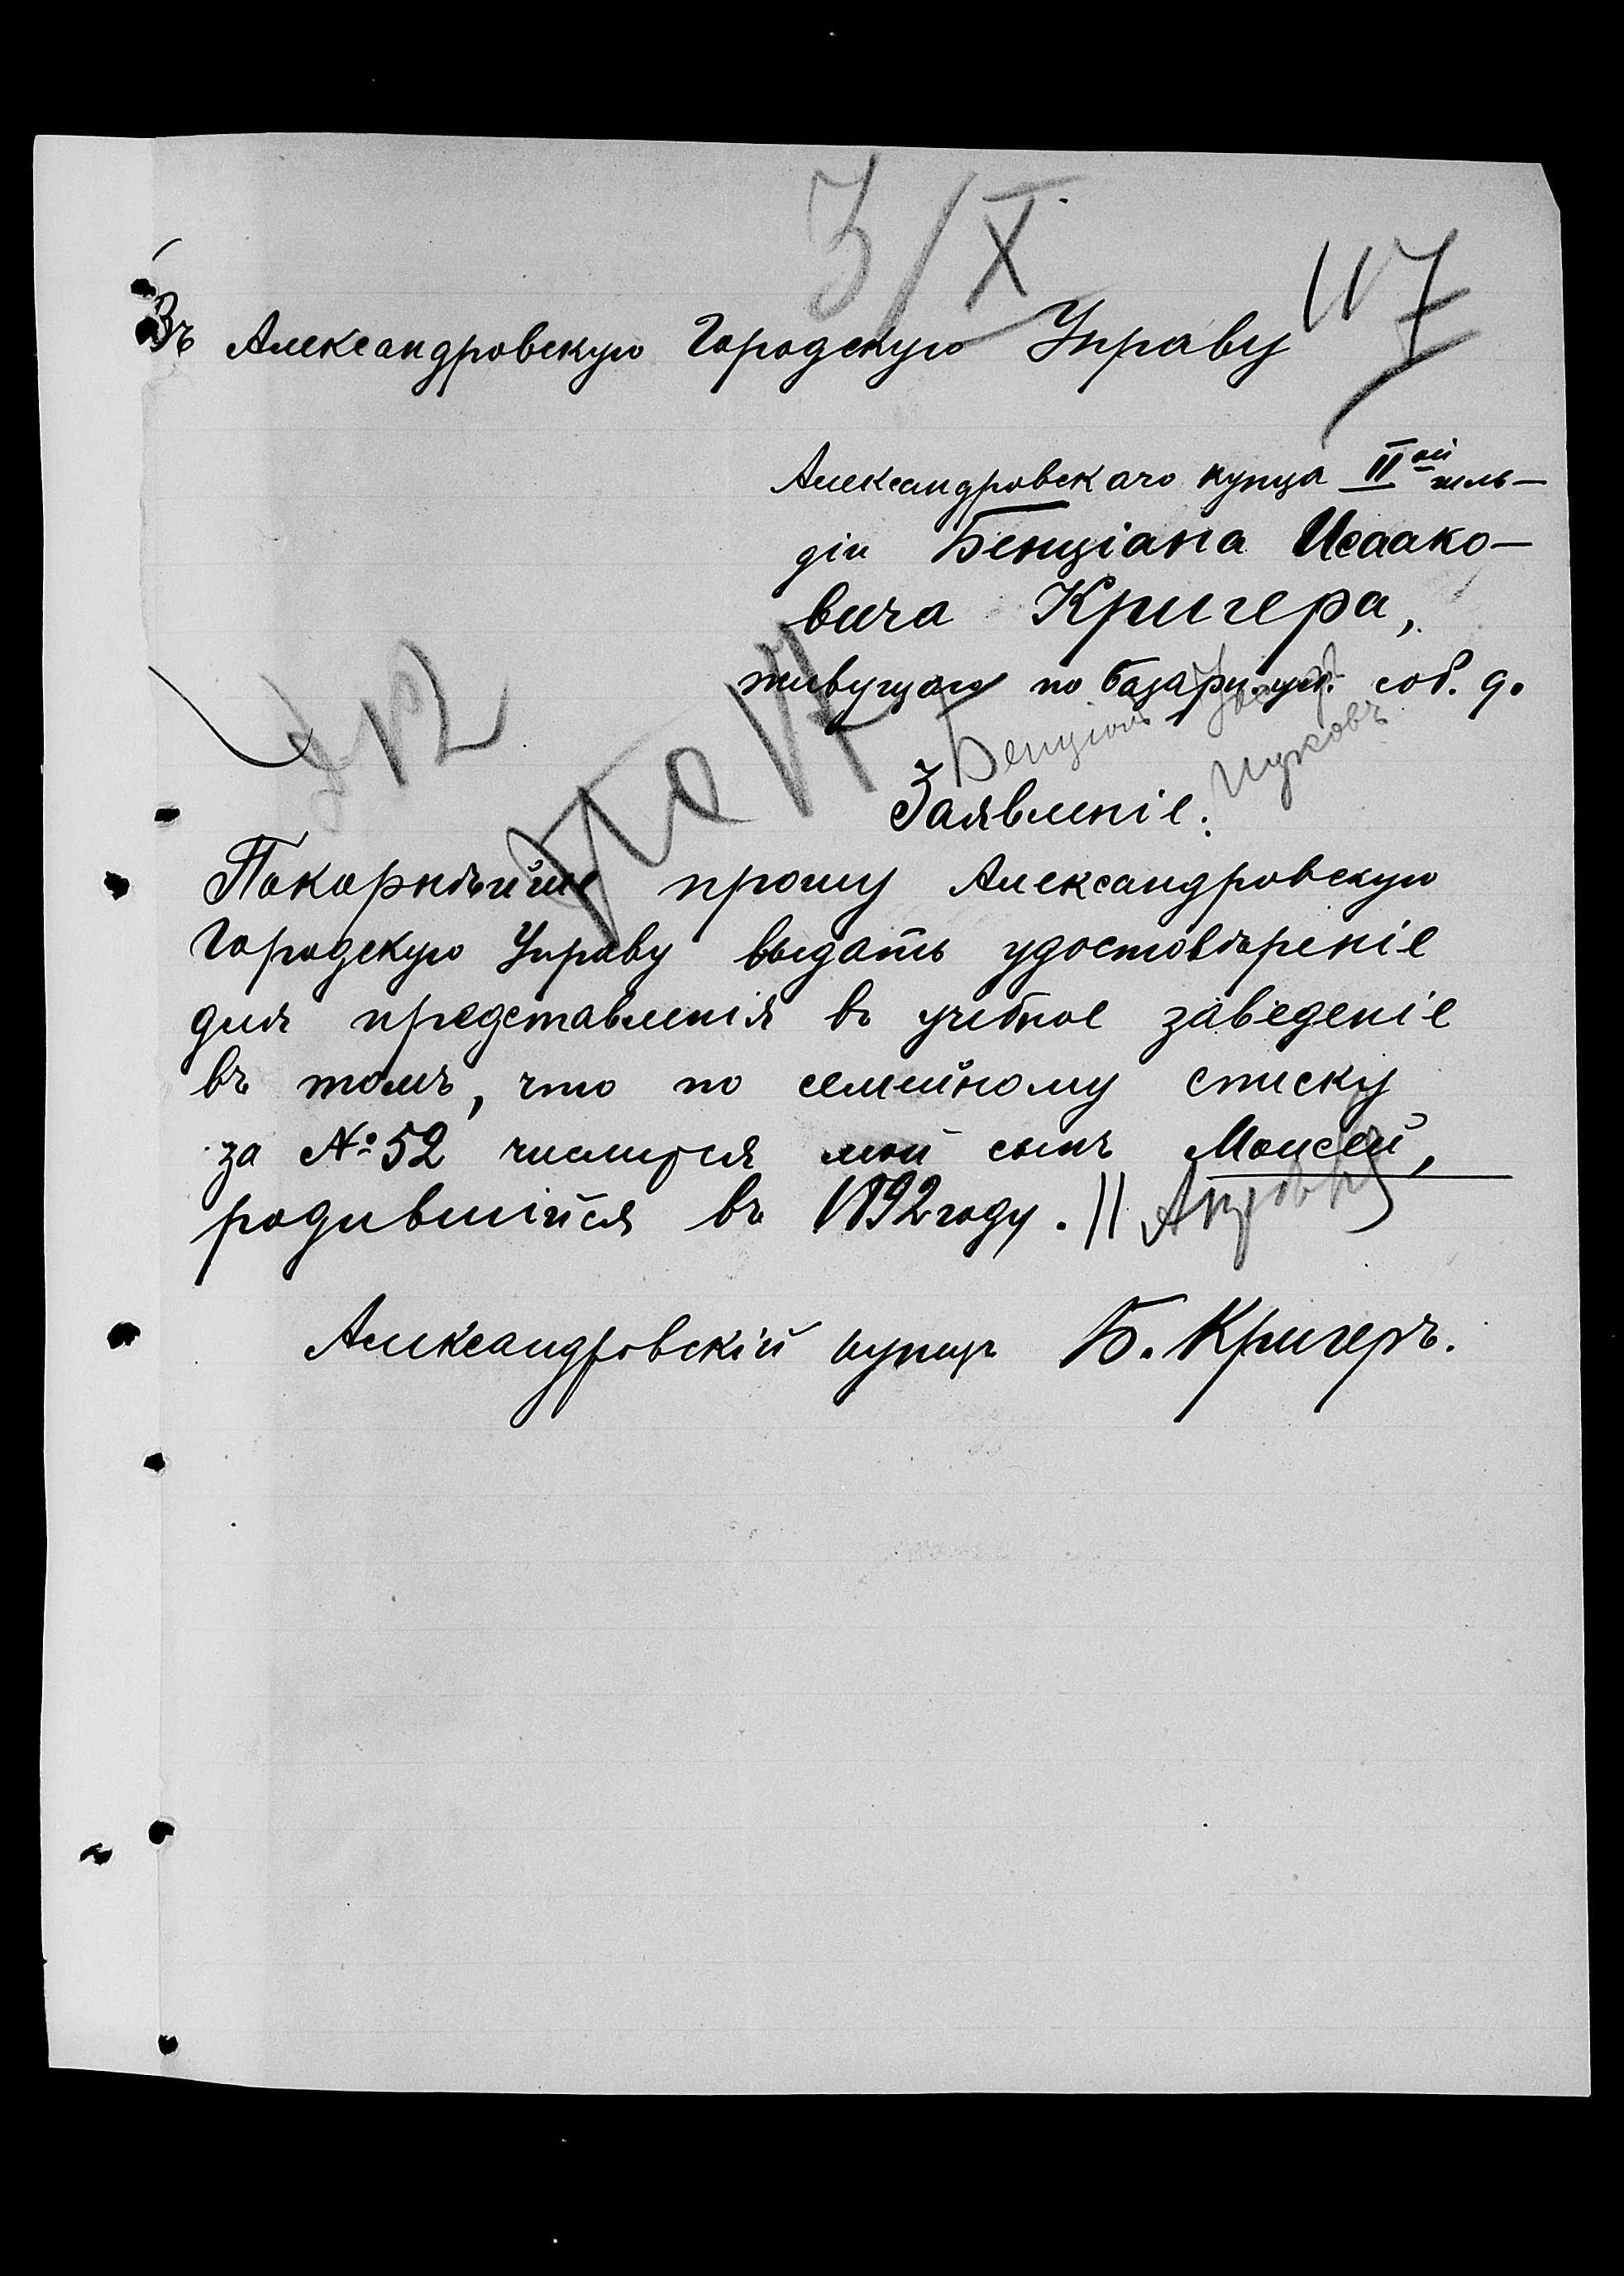 3/X
117
Въ Александровскую Городскую Управу
Александровскаго купца IIой гиль-
діи Бенціана Исаако-
вича Кригера,
живущаго по базарн. ул. соб. д.
Бенціонъ
Заявленіе.
Покорнѣйше прошу Александровскую
Городскую Управу выдать удостовѣреніе
для представленія въ учебное заведеніе
въ томъ, что по семейному списку
за № 52 числится мой сынъ Моисей,
родившійся въ 1892 году. //
Александровскій купецъ Б. Кригеръ.